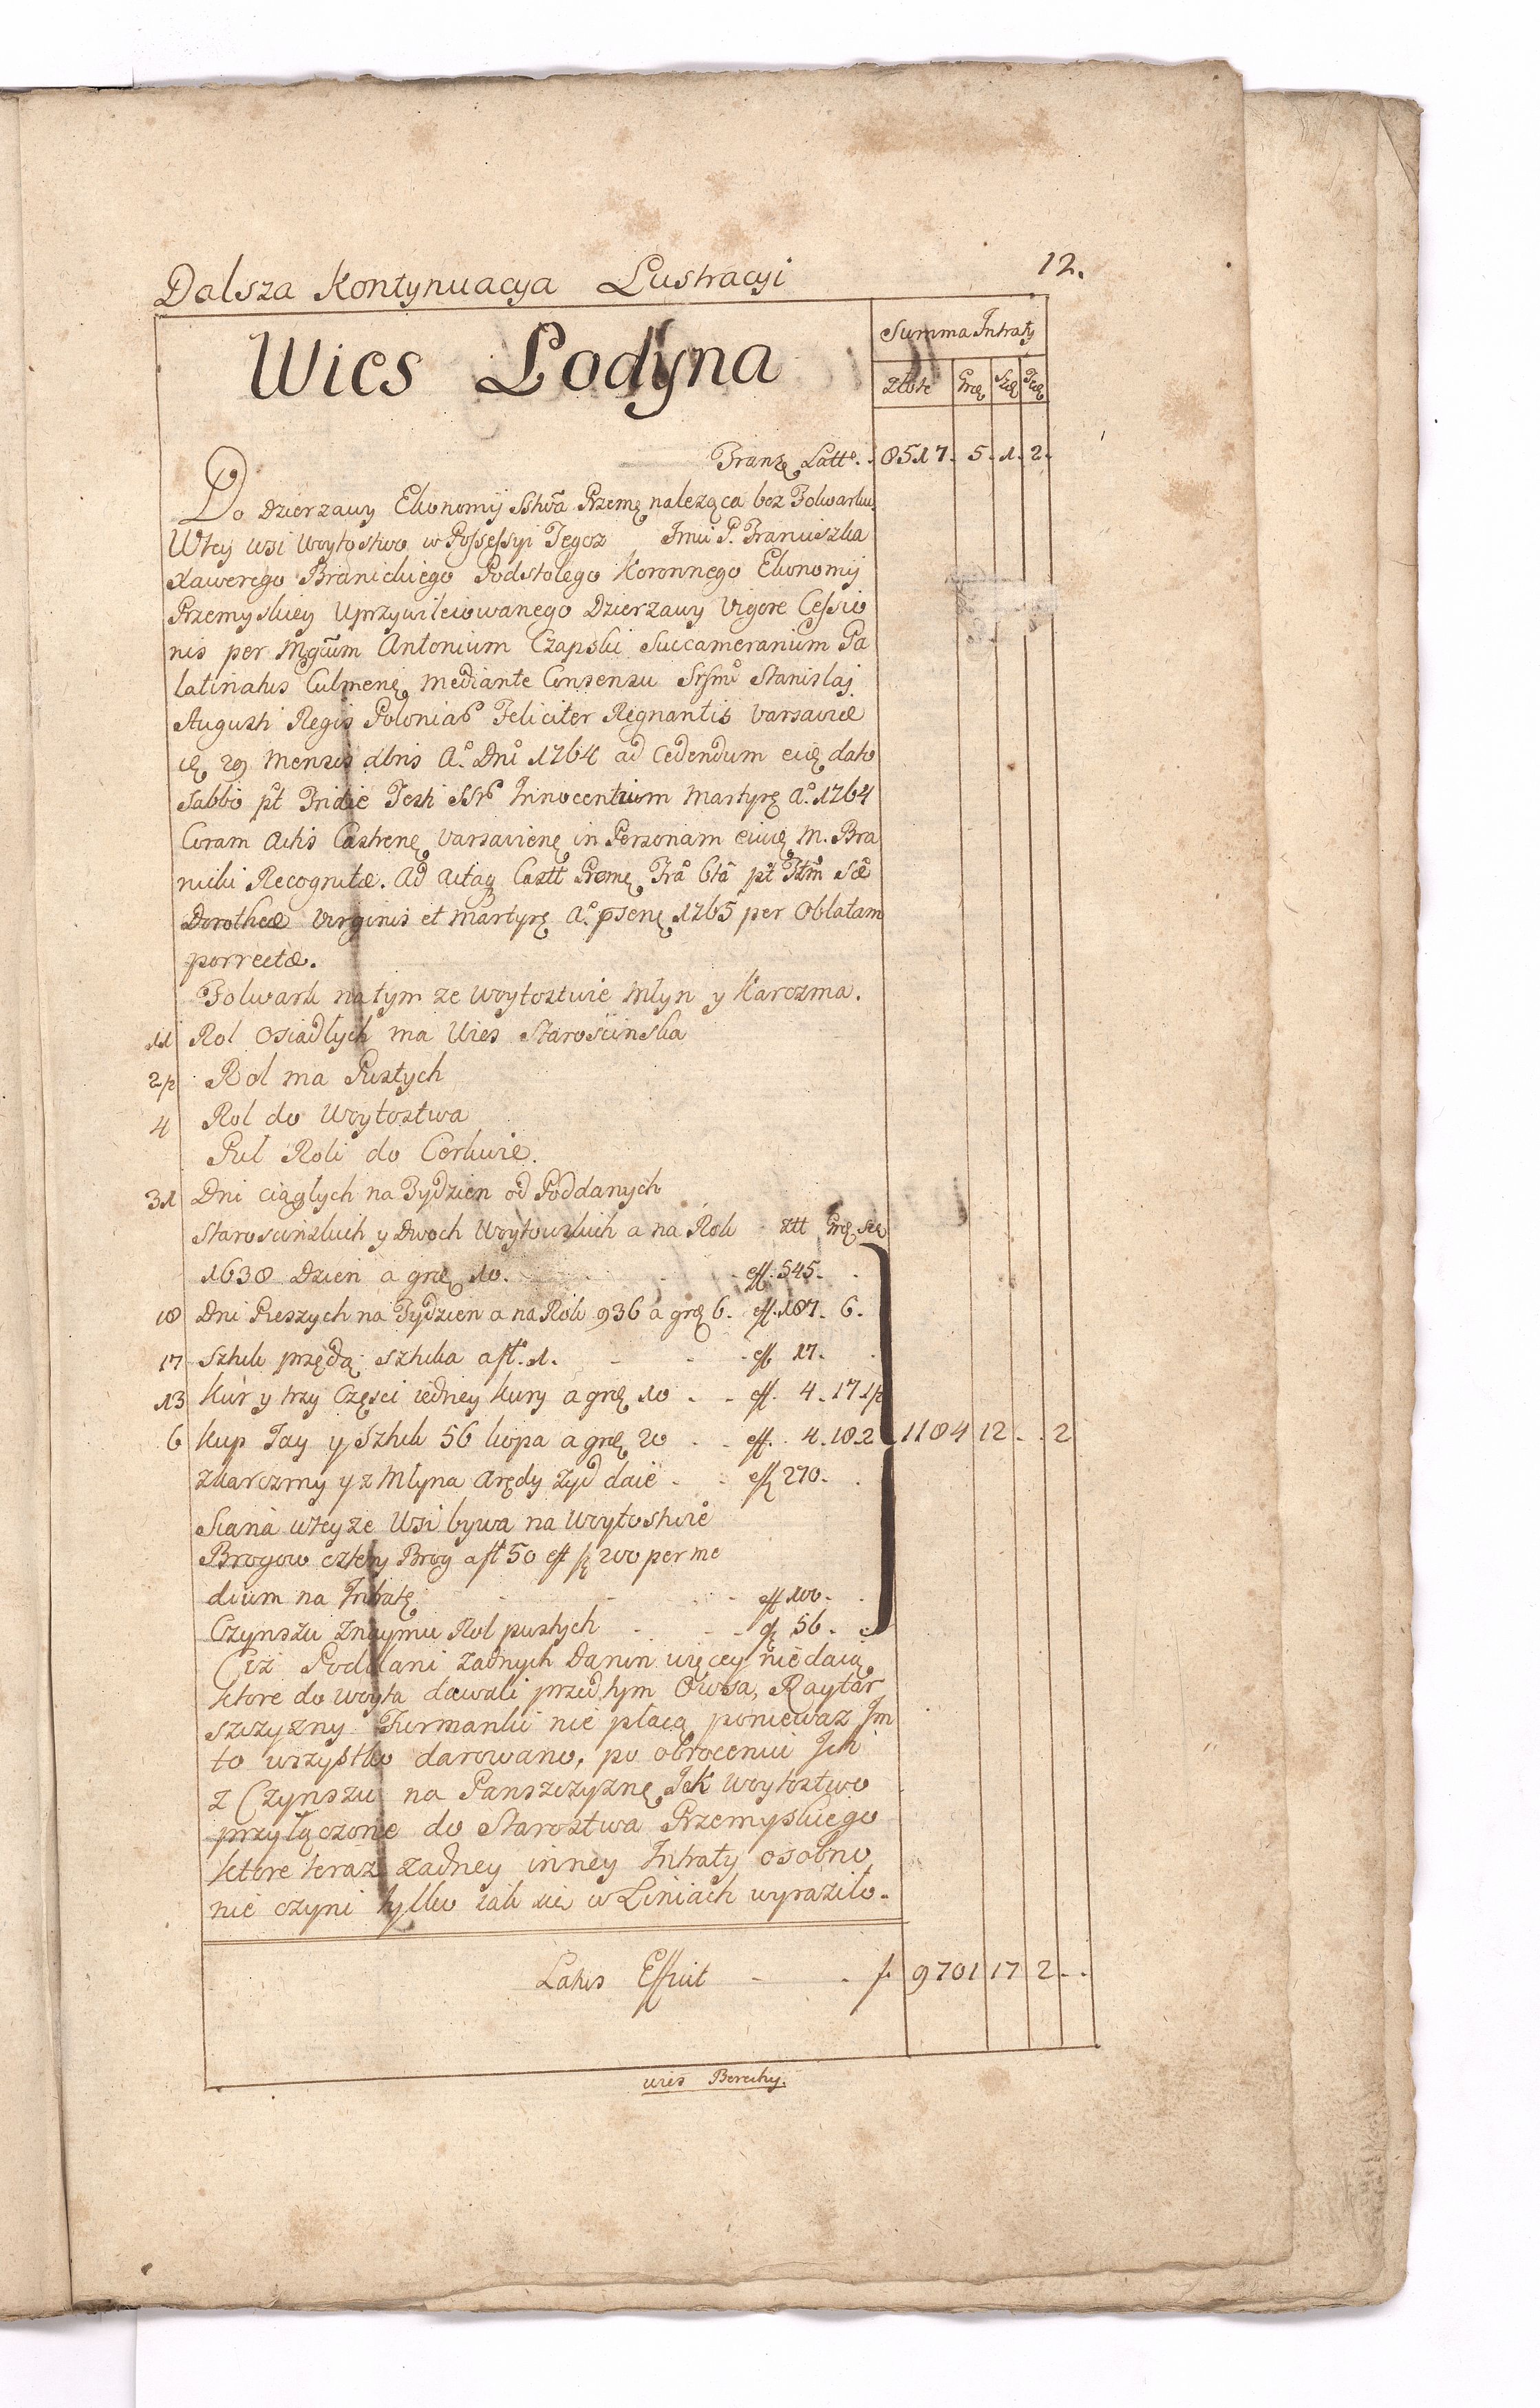 12.
Dalsza Kontynuacya Lustracyi
Summa Intraty
Wies Lodyna
Złote Grę Szę Tcię
Tranzę Latte. 8517. 5. 1. 2.
Do Dzierzawy Ekonomij Sstwa Przemę naleząca bez Folwarku,
Wtey wsi woytostwo w Possessyi Tegoz Jmci P. Franciszka
Xawerego Branickiego Podstolego Koronnego Ekonomij
Przemyskiey Uprzywileiowanego Dzierzawy Vigore Cessio
nis per Mgcum Antonium Czapski Succamerarium Pa
latinatus Culmenę Mediante Consensu Srsmi Stanislaj
Augusti Regis Poloniae Feliciter Regnantis Varsaviae
29 Mensis Xbris Ao. Dni 1764 ad Cedendum eię dato
Sabbo pt Pridie Festi SSr Innocentium Martyrę Ao. 1764
Coram Actis Castrenę Varsavienę in Personam eiuę M. Bra
nicki Recognitae. Ad Actaq Castt Premę Fra 6ta pt Ftm Scae
Dorotheae Virginis et Martyrę Ao. psenę 1765 per Oblatam
porrectae.
Folwark na tym ze woytostwie Mlyn y Karczma.
11 Rol Osiadłych ma Wies Starościnska
2½ Rol ma Pustych
4 Rol do Woytostwa
Puł Roli do Cerkwie.
31 Dni ciągłych na Tydzien od Poddanych
Staroscinskich y Dwoch Woytowskich a na Rok ztt Grę Szę
1638 Dzien a grę 10. eff. 545.
18 Dni Pieszych na Tydzien a na Rok 936 a grę 6. eff. 187. 6.
17 Sztuk przędzą sztuka a ft. 1. eff. 17.
13 Kur y trzy Części iedney Kury a grę 10 eff. 4. 17 1/2
6 Kup Jay y Sztuk 56 kopa a grę 20 eff. 4. 18. 2 1184 12 . . 2
z karczmy y z Mlyna Arędy Zyd daie eff 270.
Siana wteyze Wsi bywa na Woytostwie
Brogow cztery Brog a ft 50 eff 200 per me
dium na Intratę eff 100.
Czynszu Znaymu Rol pustych 56.
Ciż Poddani żadnych Danin więcey niedaią
ktore do woyta dawali przed tym Owsa, Raytar
szczyzny Furmanki nie płacą poniewaz Jm
to wszystko darowano, po obroceniu Ich
z Czynszu na Panszczyznę Jak Woytostwo
przyłączone do Starostwa Przemyskiego
ktore teraz zadney inney Intraty osobno
nie czyni tylko iak się w Liniach wyraziło.
Latus Efficit f. 9701 17 2 . .
wies Berehy.